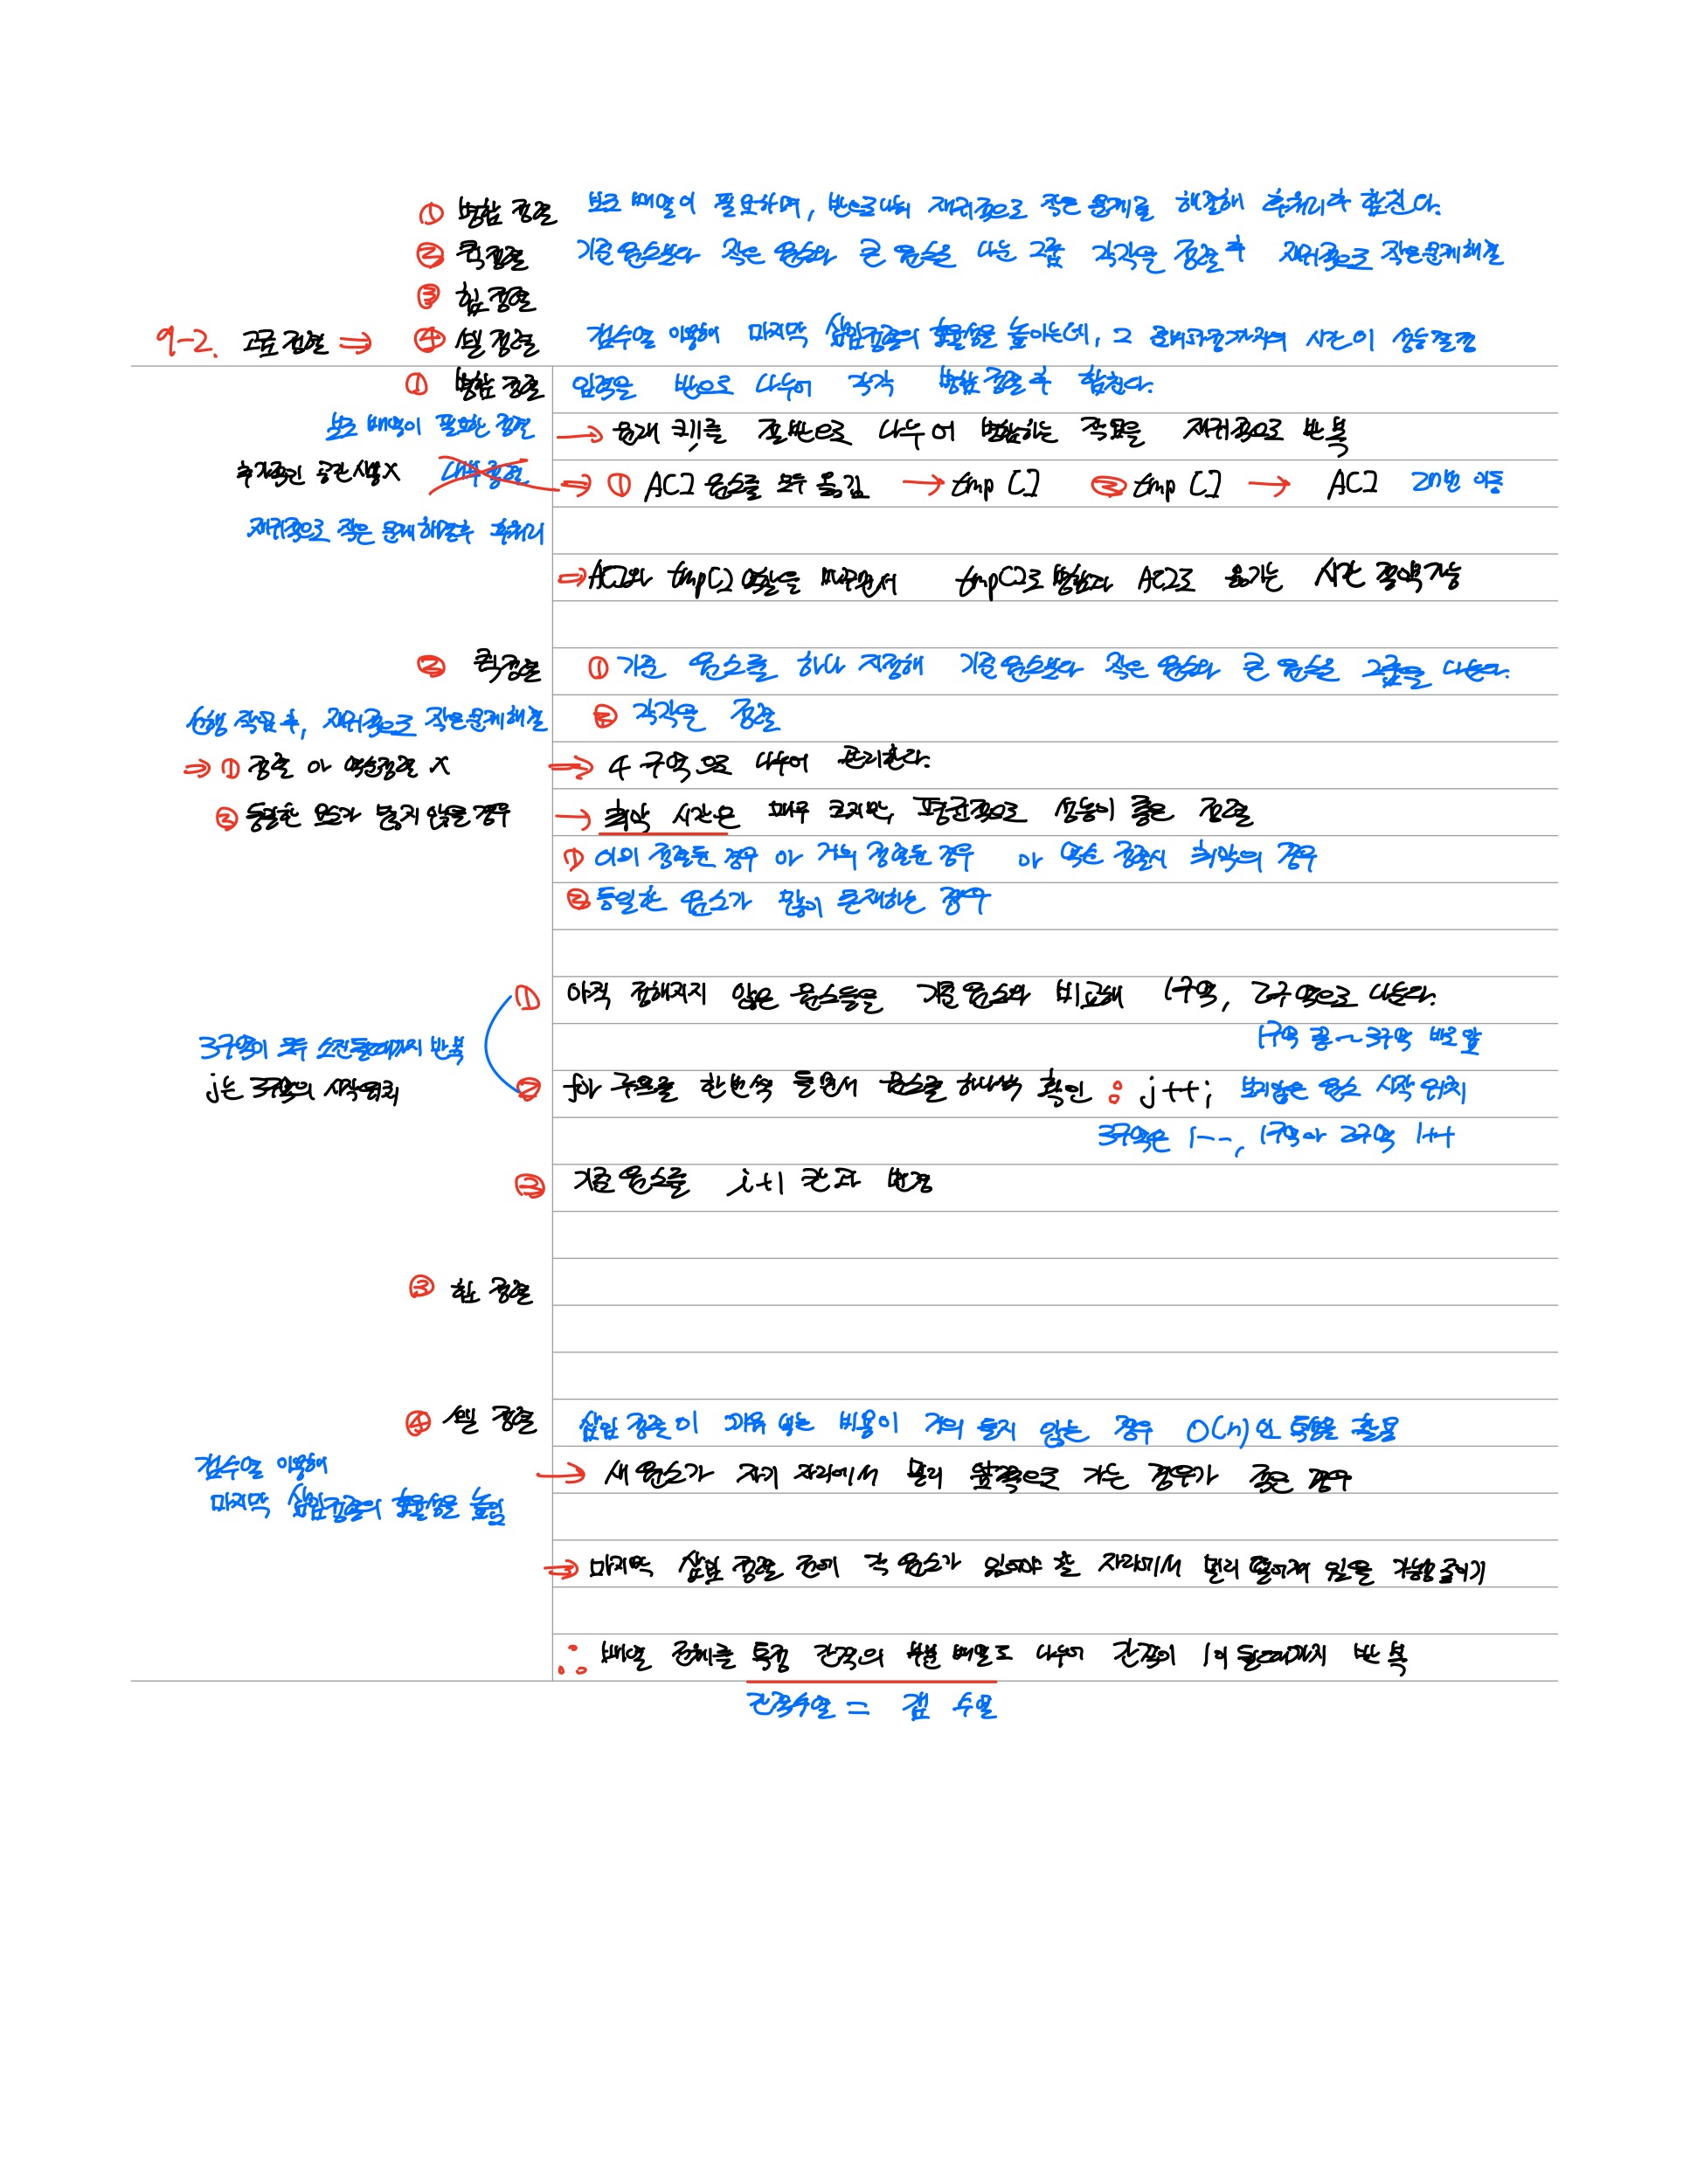 ① 병합 정렬 보조 배열이 필요하며, 반으로 나눠 재귀적으로 작은 문제를 해결해 후처리후 합친다.
② 퀵 정렬 기준 원소보다 작은 원소와 큰 원소을 나눈 그룹 각각을 정렬 후 재귀적으로 작은문제해결
③ 힙 정렬
9-2. 고급 정렬 ⇒ ④ 쉘 정렬 갭수열 이용해 마지막 삽입정렬의 효율성을 높이는데, 그 준비과정까지의 시간이 성능결정
① 병합 정렬 입력을 반으로 나누어 각각 병합 정렬 후 합친다.
보조 배열이 필요한 정렬 → 원래 크기를 절반으로 나누어 병합하는 작업을 재귀적으로 반복
추가적인 공간 사용X 내부정렬 ⇒ ① A[] 원소를 모두 옮김 → tmp [] ② tmp [] → A[] 2n번 이동
재귀적으로 작은 문제 해결후 후처리
⇒ A[]와 tmp[] 역할을 바꾸면서 tmp[]로 병합과 A[]로 옮기는 시간 절약가능
② 퀵정렬 ① 기준 원소를 하나 지정해 기준원소보다 작은 원소와 큰 원소을 그룹을 나눈다.
선행 작업 후, 재귀적으로 작은문제해결 ② 각각을 정렬
⇒ ① 정렬 or 역순정렬 X ⇒ 4 구역으로 나누어 관리한다.
② 동일한 요소가 많지 않을 경우 → 최악 시간은 매우 크지만, 평균적으로 성능이 좋은 정렬
① 이미 정렬된 경우 or 거의 정렬된 경우 or 역순 정렬시 최악의 경우
② 동일한 원소가 많이 존재하는 경우
① 아직 정해지지 않은 원소들을 기준 원소와 비교해 1구역, 2구역으로 나눈다.
1구역 끝~3구역 바로 앞
3구역이 모두 소진될때까지 반복
j는 3구역의 시작위치 ② for 구문을 한번씩 돌면서 원소를 하나씩 확인 : j++; 보지않은 원소 시작 위치
3구역은 1--, 1구역 or 2구역 1++
③ 기준 원소를 i+1 칸과 변경
③ 힙 정렬
④ 쉘 정렬 삽입 정렬이 자유 비용이 거의 들지 않는 경우 O(n)인 특성을 활용
갭수열 이용해 → 새 원소가 자기 자리에서 멀리 앞쪽으로 가는 경우가 적은 경우
마지막 삽입정렬의 효율성을 높임
⇒ 마지막 삽입 정렬 전에 각 원소가 있어야 할 자리에서 멀리 떨어져 있을 가능성 줄이기
∴ 배열 전체를 특정 간격의 부분 배열로 나누어 간격이 1이 될때까지 반복
간격수열 = 갭 수열